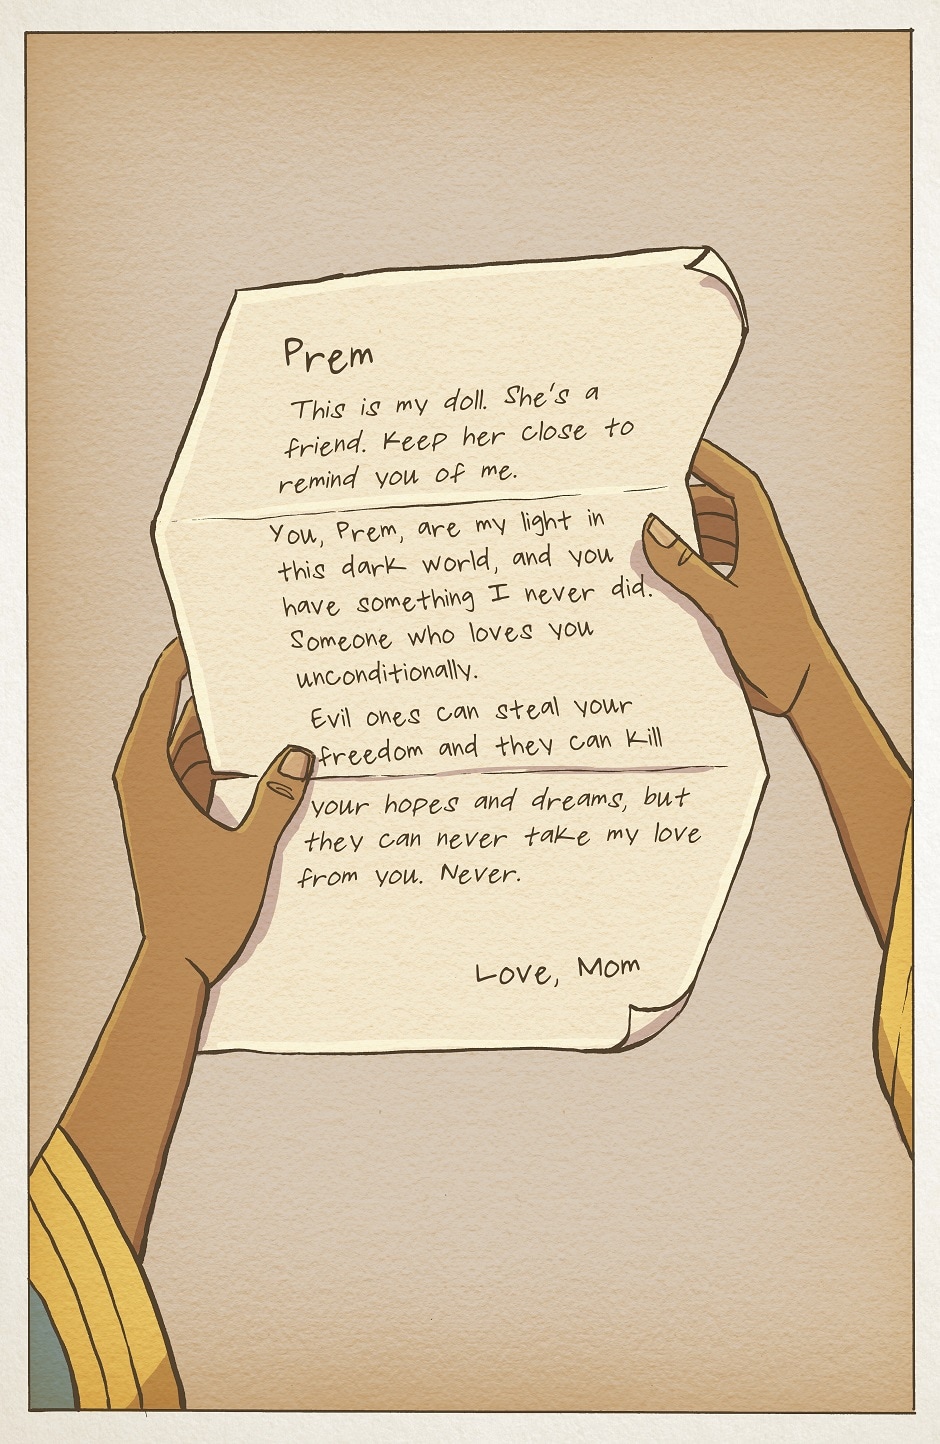 Prem
This is my doll. She's a
friend. Keep her close to
remind you of me.
You, Prem, are my light in
this dark world, and you
have something I never did.
Someone who loves you
unconditionally.
Evil ones can steal your
freedom and they can kill
your hopes and dreams, but
they can never take my love
from you. Never.
Love, Mom